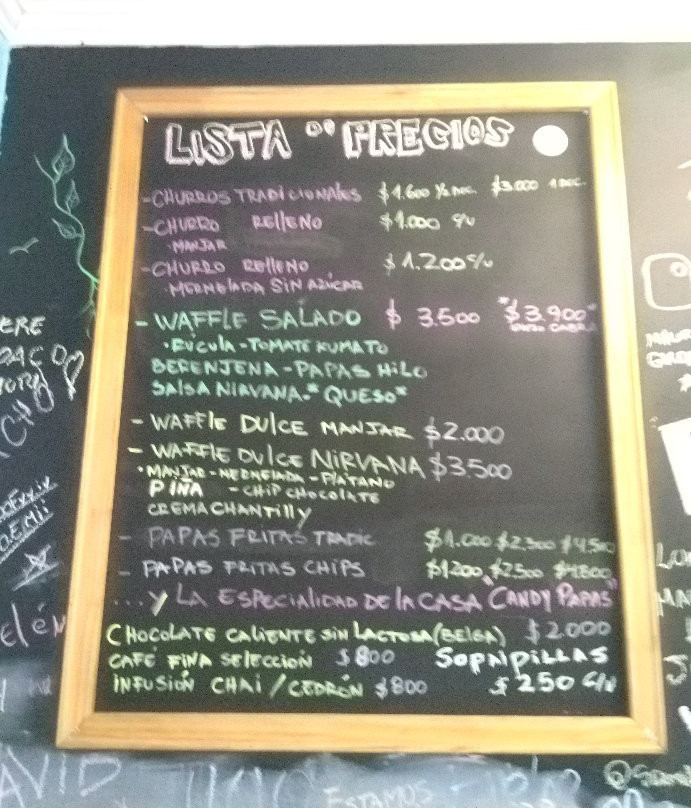 LISTA DE PRECIOS
- CHURROS TRADICIONALES $1.600 ½ DOC. $3.000 1 DOC.
- CHURRO RELLENO $1.000 c/u
· MANJAR
- CHURRO RELLENO $1.200 c/u
· MERMELADA SIN AZÚCAR
- WAFFLE SALADO $ 3.500 "$3.900"
QUESO CABRA
· RÚCULA - TOMATE KUMATO
BERENJENA - PAPAS HILO
SALSA NIRVANA - *QUESO*
- WAFFLE DULCE MANJAR $2.000
- WAFFLE DULCE NIRVANA $3.500
· MANJAR - MERMELADA - PLATANO
PIÑA - CHIP CHOCOLATE
CREMA CHANTILLY
- PAPAS FRITAS TRADIC $1.000 $2.300 $4.500
- PAPAS FRITAS CHIPS $1200 $2500 $4800
...Y LA ESPECIALIDAD DE la CASA "CANDY PAPAS"
CHOCOLATE CALIENTE SIN LACTOSA (BELGA) $2.000
CAFÉ FINA SELECCIÓN $800 SOPAIPILLAS
INFUSIÓN CHAI / CEDRÓN $800 $250 c/u
AVID
ESTAMOS